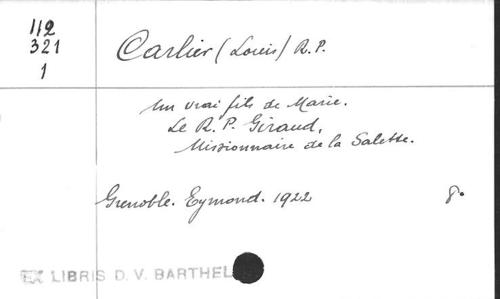 112
321
1
Carlier (Louis) R.P.
Un vrai fils de Marie.
Le R. P. Giraud,
Missionnaire de la Salette.
Grenoble. Eymond. 1922 8°.
EX LIBRIS D. V. BARTHEL